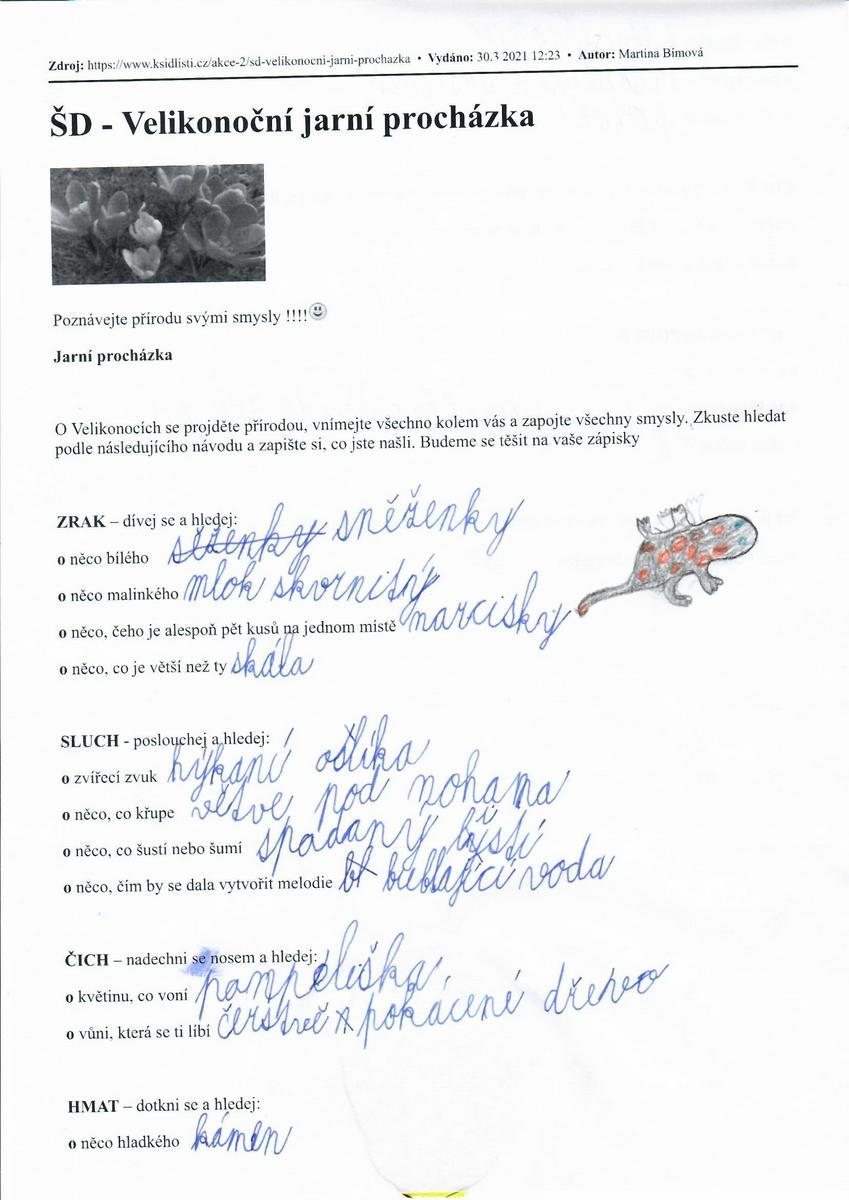 Zdroj: https://www.ksidlisti.cz/akce-2/sd-velikonocni-jarni-prochazka • Vydáno: 30.3 2021 12:23 • Autor: Martina Bímová
ŠD - Velikonoční jarní procházka
Poznávejte přírodu svými smysly !!!!
Jarní procházka
O Velikonocích se projděte přírodou, vnímejte všechno kolem vás a zapojte všechny smysly. Zkuste hledat
podle následujícího návodu a zapište si, co jste našli. Budeme se těšit na vaše zápisky
ZRAK – dívej se a hledej:
o něco bílého sněženky
o něco malinkého mlok skvrnitný
o něco, čeho je alespoň pět kusů na jednom místě narcisky
o něco, co je větší než ty skála
SLUCH - poslouchej a hledej:
o zvířecí zvuk hýkaní oslíka
o něco, co křupe větve pod nohama
o něco, co šustí nebo šumí spadaný lístí
o něco, čím by se dala vytvořit melodie bublající voda
ČICH – nadechni se nosem a hledej:
o květinu, co voní pampeliška
o vůni, která se ti líbí pokácené dřevo
HMAT – dotkni se a hledej:
o něco hladkého kámen